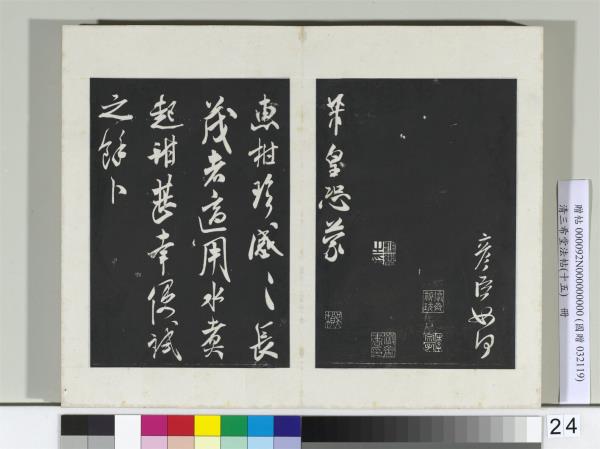 彥臣如何
芾皇恐蒙
惠柑珍感〻長
茂者適用水煮
起甜甚幸便試
之餘卜
贈帖 000092N000000000 (國贈 032119)
清三希堂法帖(十五) 冊
24